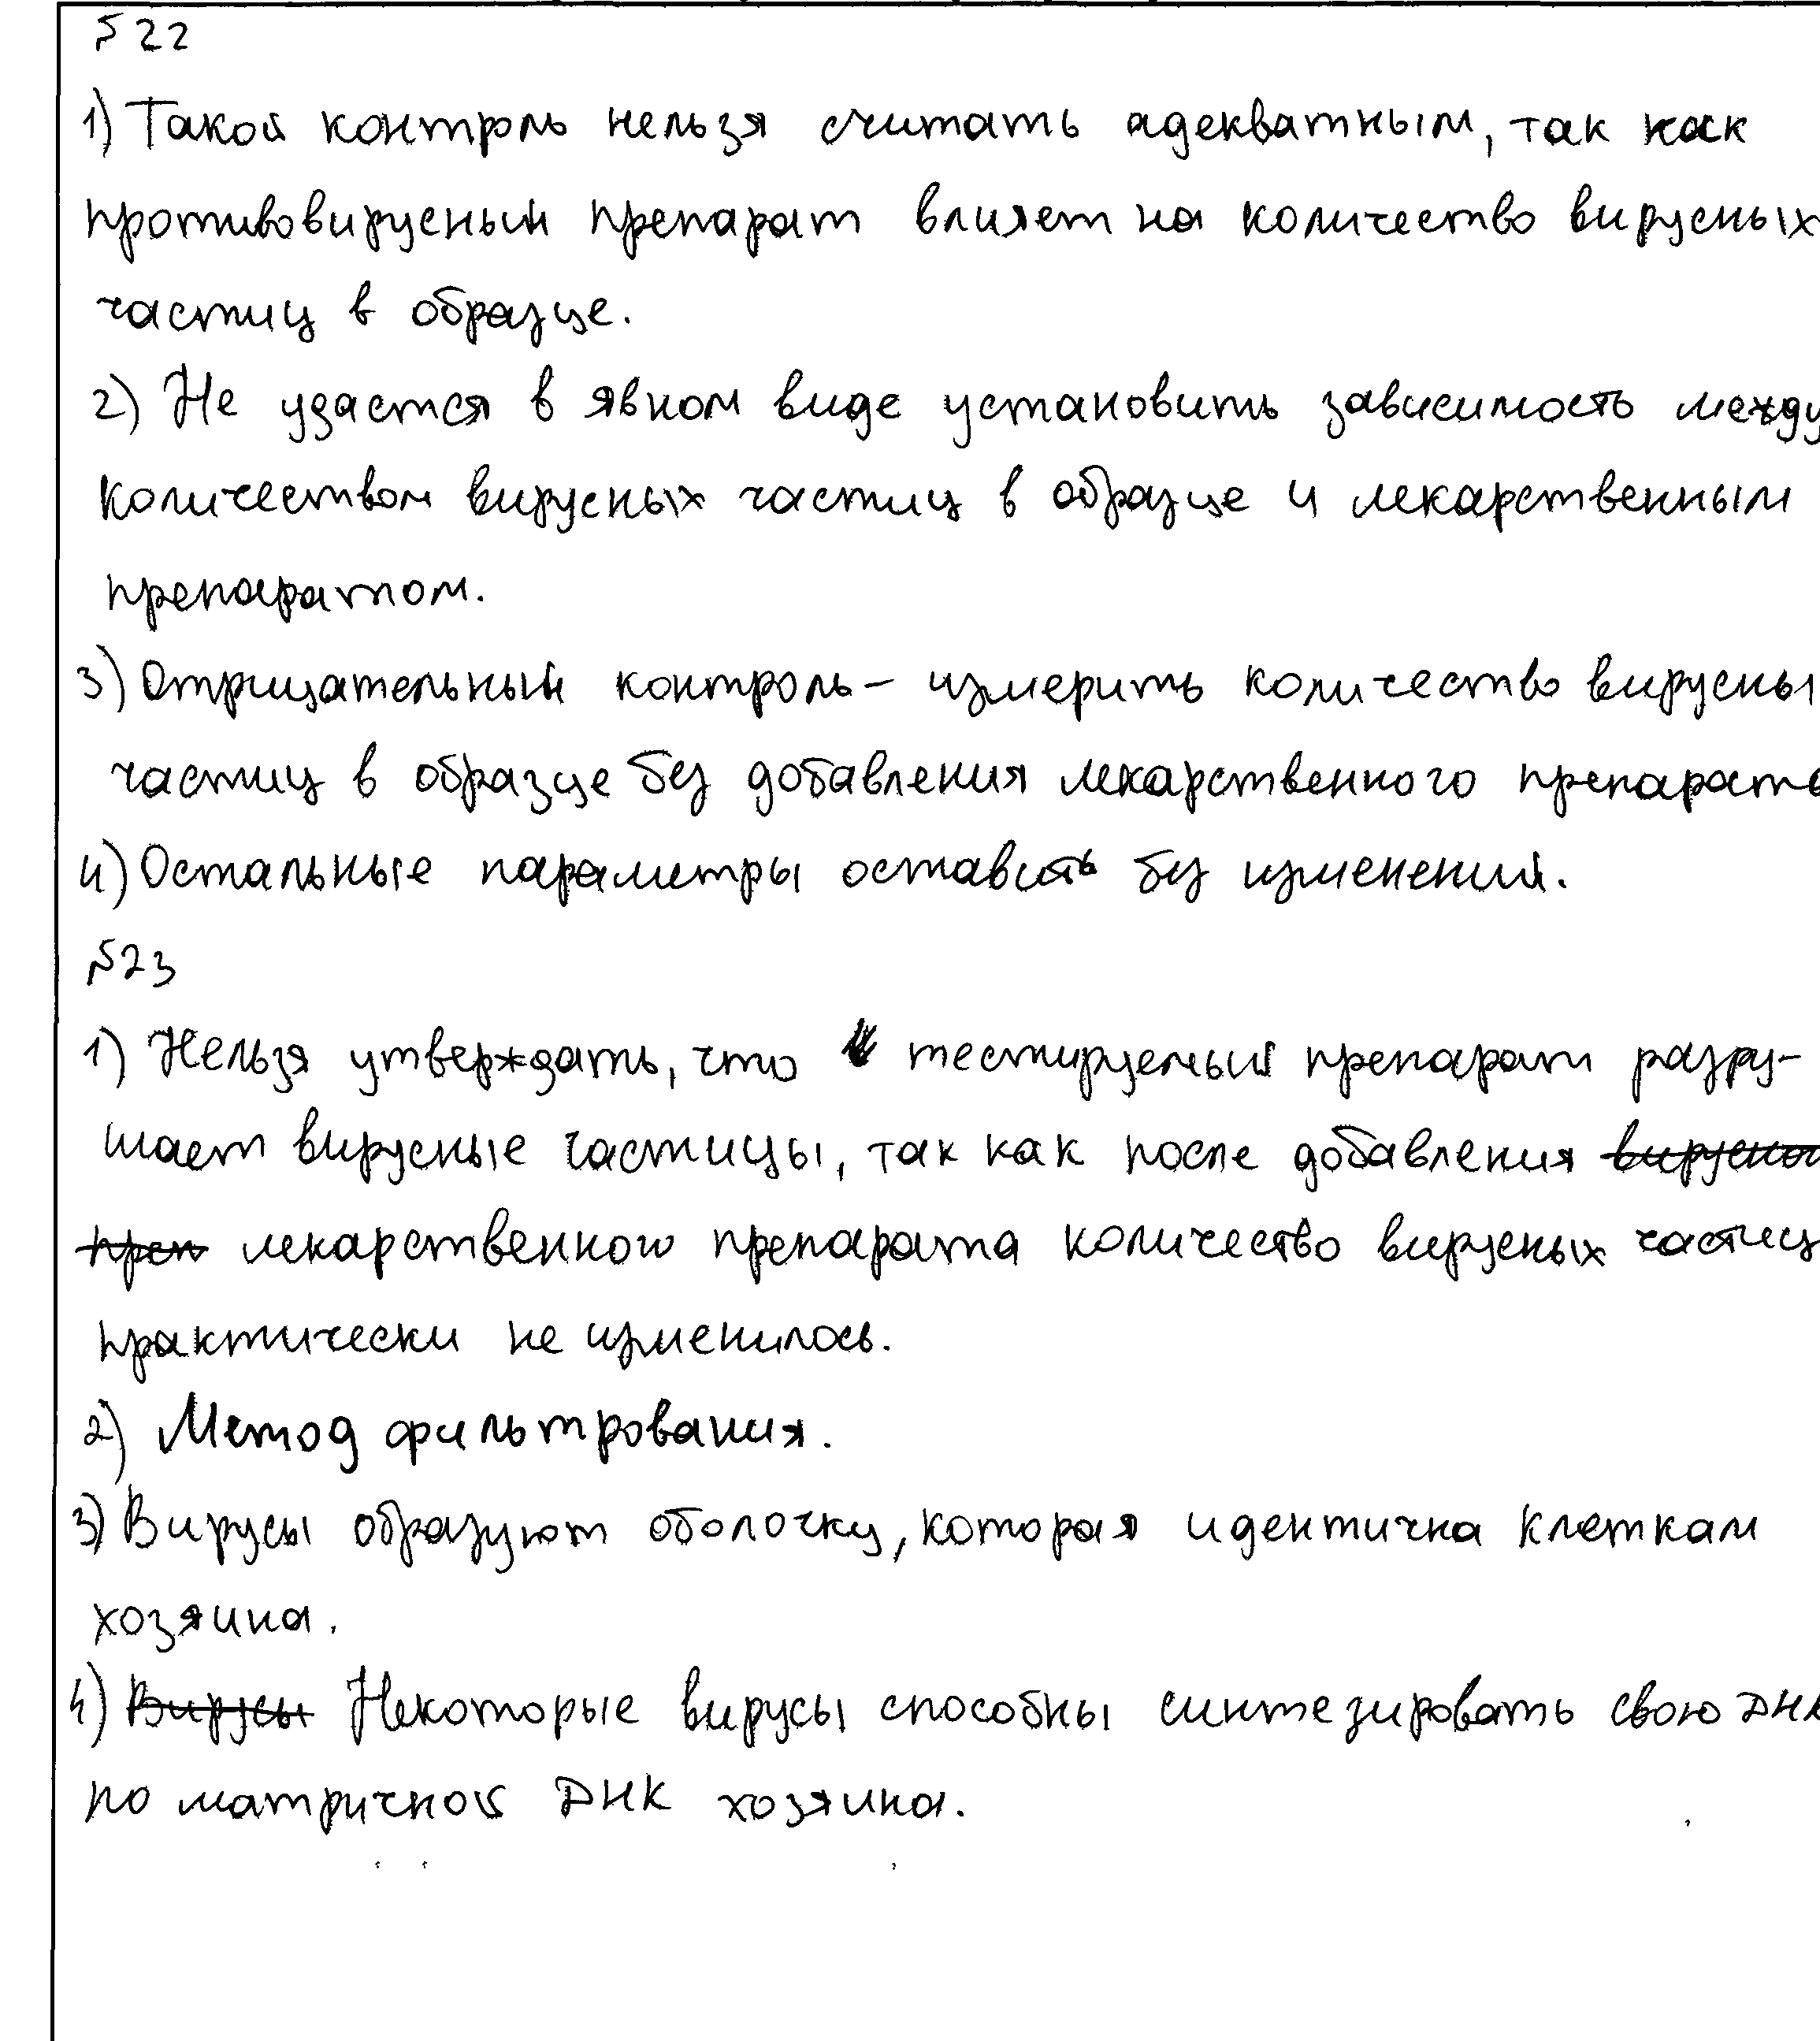 №22
1) Такой контроль нельзя считать адекватным, так как
противовирусный препарат влияет на количество вирусных
частиц в образце.
2) Не удастся в явном виде установить зависимость между
количеством вирусных частиц в образце и лекарственным
препаратом.
3) Отрицательный контроль – измерить количество вирусны
частиц в образце без добавления лекарственного препарата
4) Остальные параметры оставить без изменений.
№23
1) Нельзя утверждать, что тестируемый препарат разру-
шает вирусные частицы, так как после добавления
преп лекарственного препарата количество вирусных частиц
практически не изменилось.
2) Метод фильтрования.
3) Вирусы образуют оболочку, которая идентична клеткам
хозяина.
4) Вирусы Некоторые вирусы способны синтезировать свою ДНК
по матричной ДНК хозяина.